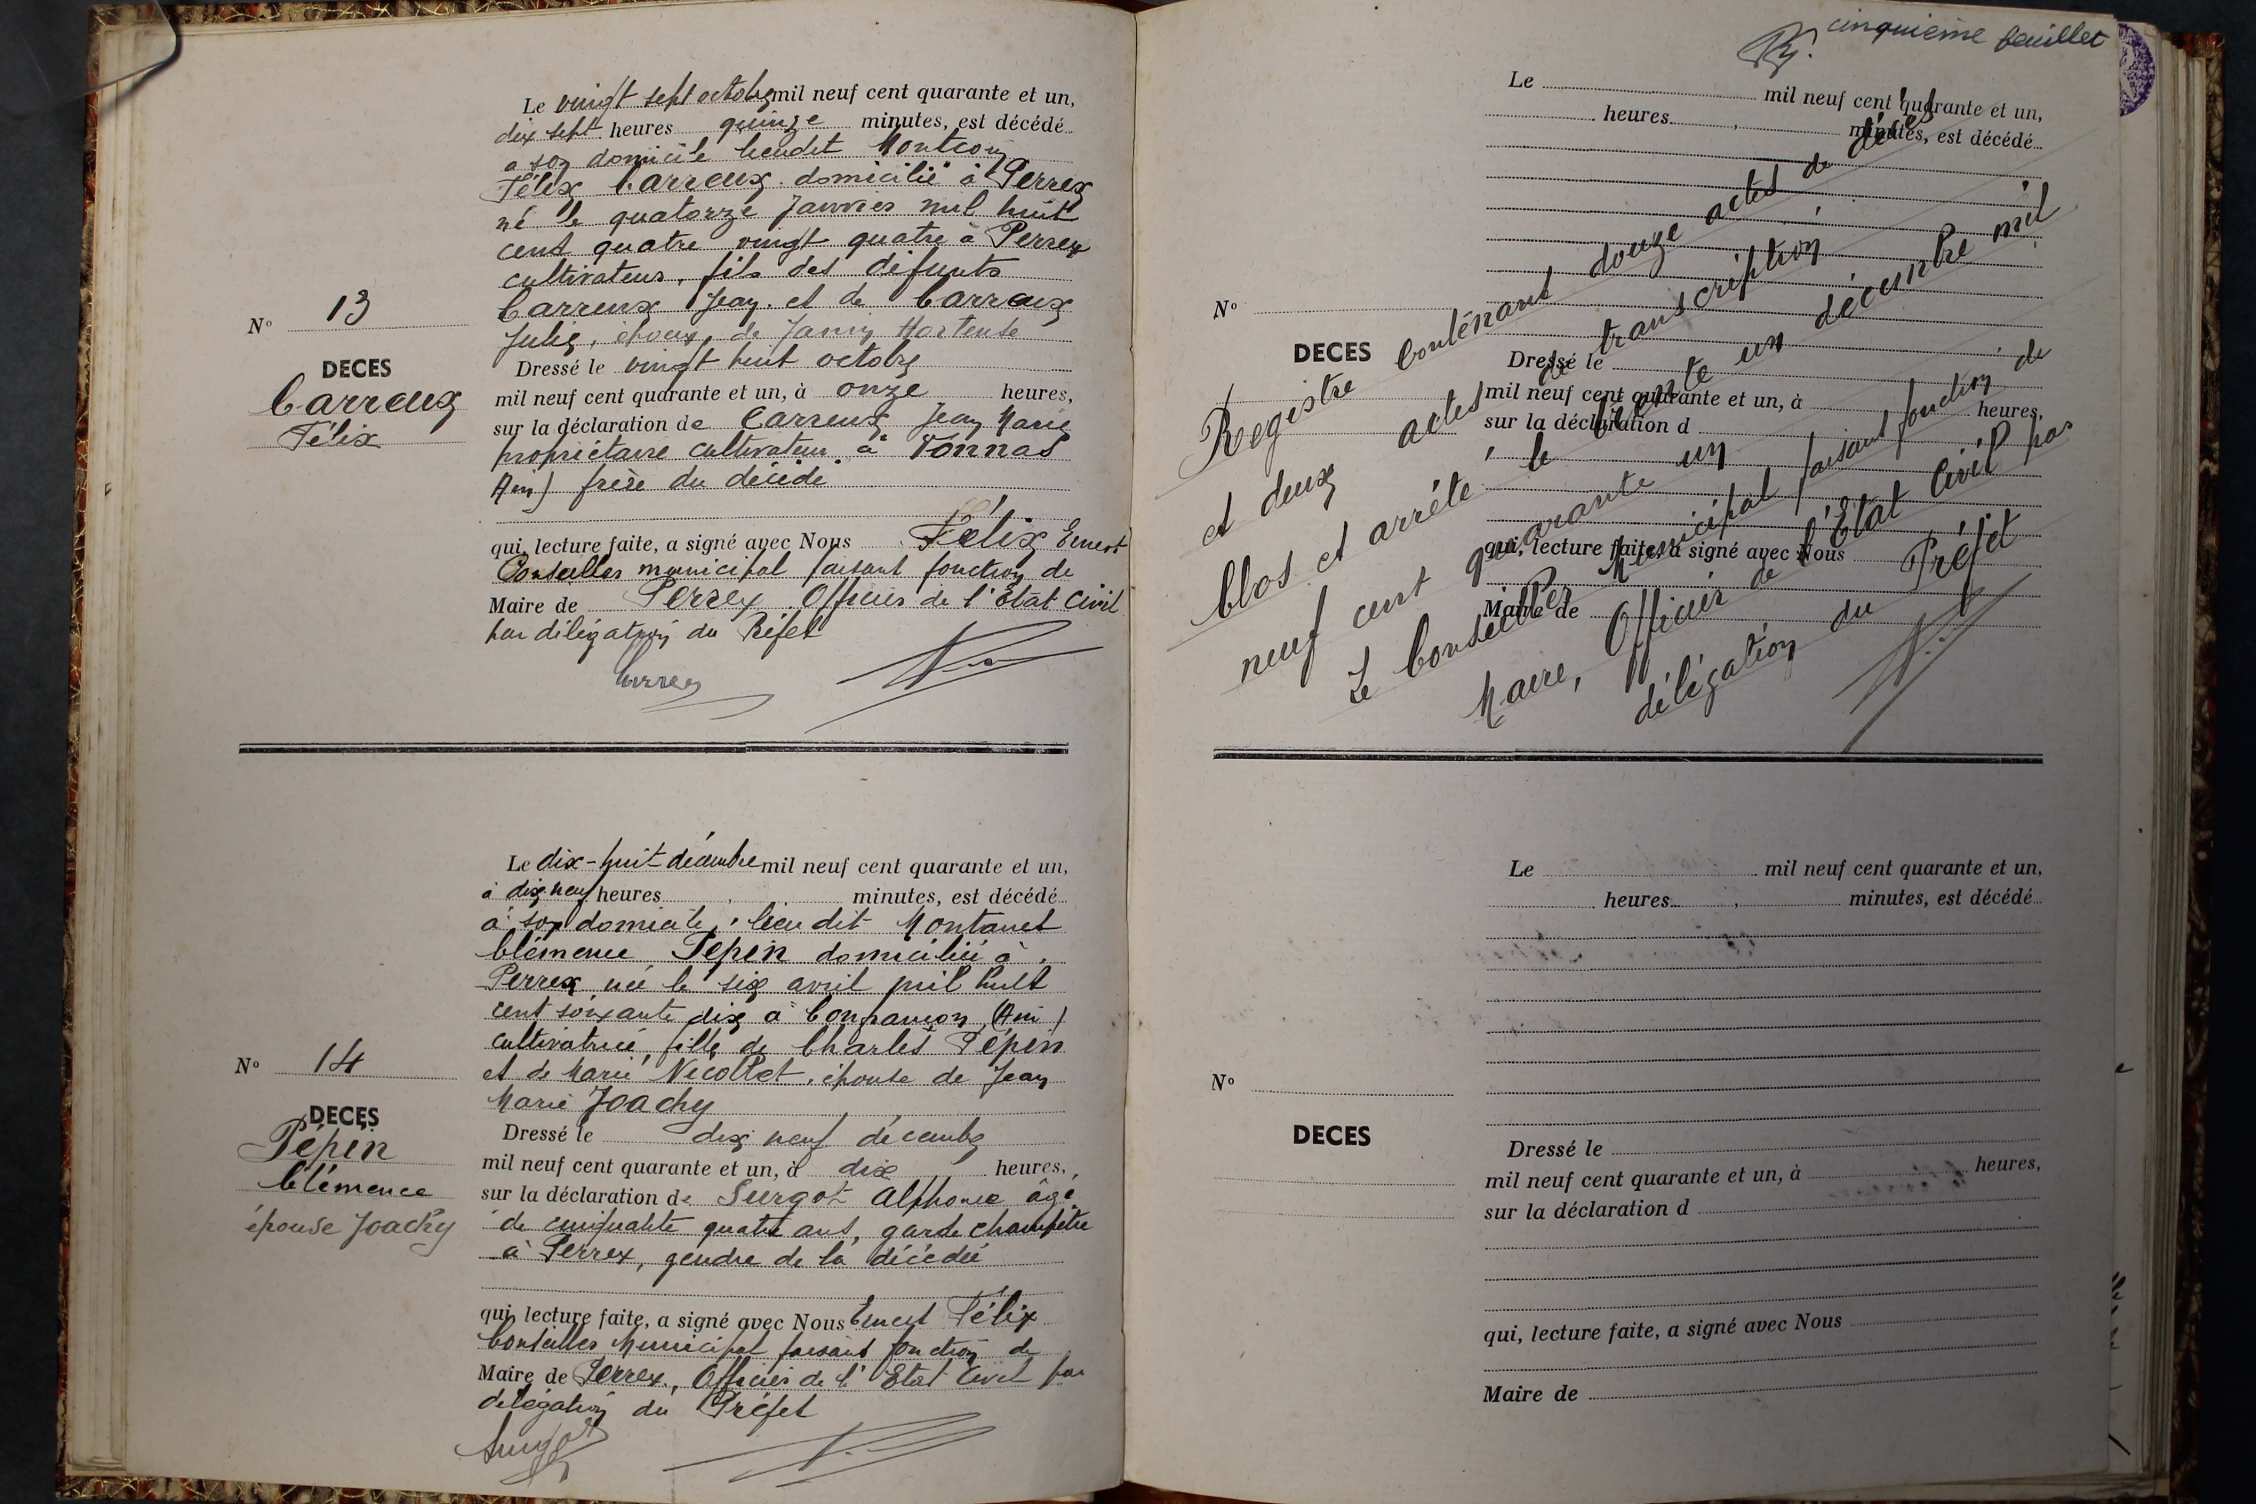 Le vingt sept octobre mil neuf cent quarante et un,
dix sept heures quinze minutes, est décédé
a son domicile lieudit Montcoin
Félix Carreux domicilié à Perrex
né le quatorze Janvier mil huit
cent quatre vingt quatre à Perrex
cultivateur, fils des défunts
Carreux Jean et de Carreux
Julie, époux de Janin Hortense
N° 13
DECES
Carreux
Félix
Dressé le vingt huit octobre
mil neuf cent quarante et un, à onze heures,
sur la déclaration de Carreux Jean Marie
propriétaire cultivateur à Vonnas
Ain) frère du décédé
qui, lecture faite, a signé avec Nous Félix Ernest
Conseiller municipal faisant fonction de
Maire de Perrex Officier de l'Etat Civil
par délégation du Préfet
Carreux
Le dix-huit décembre mil neuf cent quarante et un,
à dix neuf heures minutes, est décédé
à son domicile, lieu dit Montanet
Clémence Pépin domiciliée à
Perrex née le six avril mil huit
cent soixante dix à Confrançon (Ain)
cultivatrice, fille de Charles Pépin
et de Marie Nicollet, épouse de Jean
Marie Joachy
N° 14
DECES
Pépin
Clémence
épouse Joachy
Dressé le dix neuf décembre
mil neuf cent quarante et un, à dix heures,
sur la déclaration de Surgot Alphonse âgé
de cinquante quatre ans, garde champêtre
à Perrex, gendre de la décédée
qui, lecture faite, a signé avec Nous Ernest Félix
Conseiller Municipal faisant fonction de
Maire de Perrex, Officier de l'Etat Civil par
délégation du Préfet
Surgot
cinquième feuillet
Le mil neuf cent quarante et un,
heures minutes, est décédé
N°
DECES
Dressé le
mil neuf cent quarante et un, à heures,
sur la déclaration d
qui, lecture faite, a signé avec Nous
Maire de
Registre contenant douze actes de décès
et deux actes de transcription
Clos et arrêté le trente un décembre mil
neuf cent quarante un
Le Conseiller Municipal faisant fonction de
Maire, Officier de l'Etat Civil par
délégation du Préfet
Le mil neuf cent quarante et un,
heures minutes, est décédé
N°
DECES
Dressé le
mil neuf cent quarante et un, à heures,
sur la déclaration d
qui, lecture faite, a signé avec Nous
Maire de